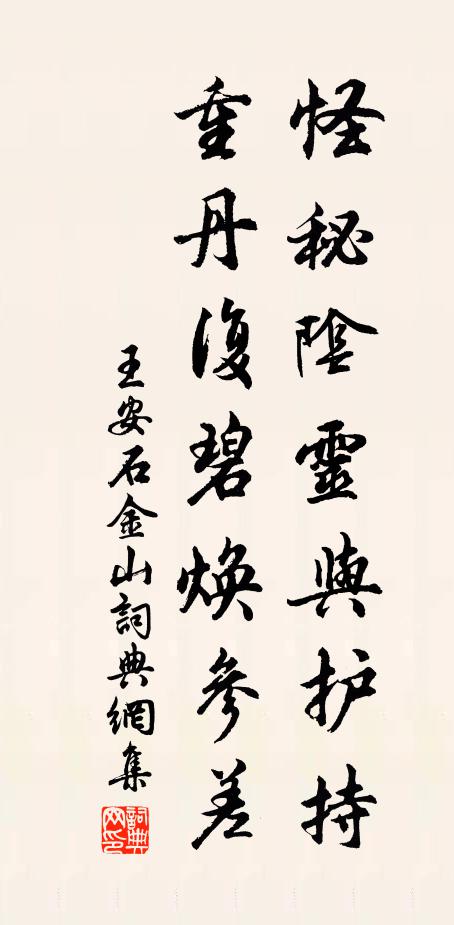 怪秘陰靈與护持
重丹復碧煥參差
王安石金山詞典網集
詞典网印